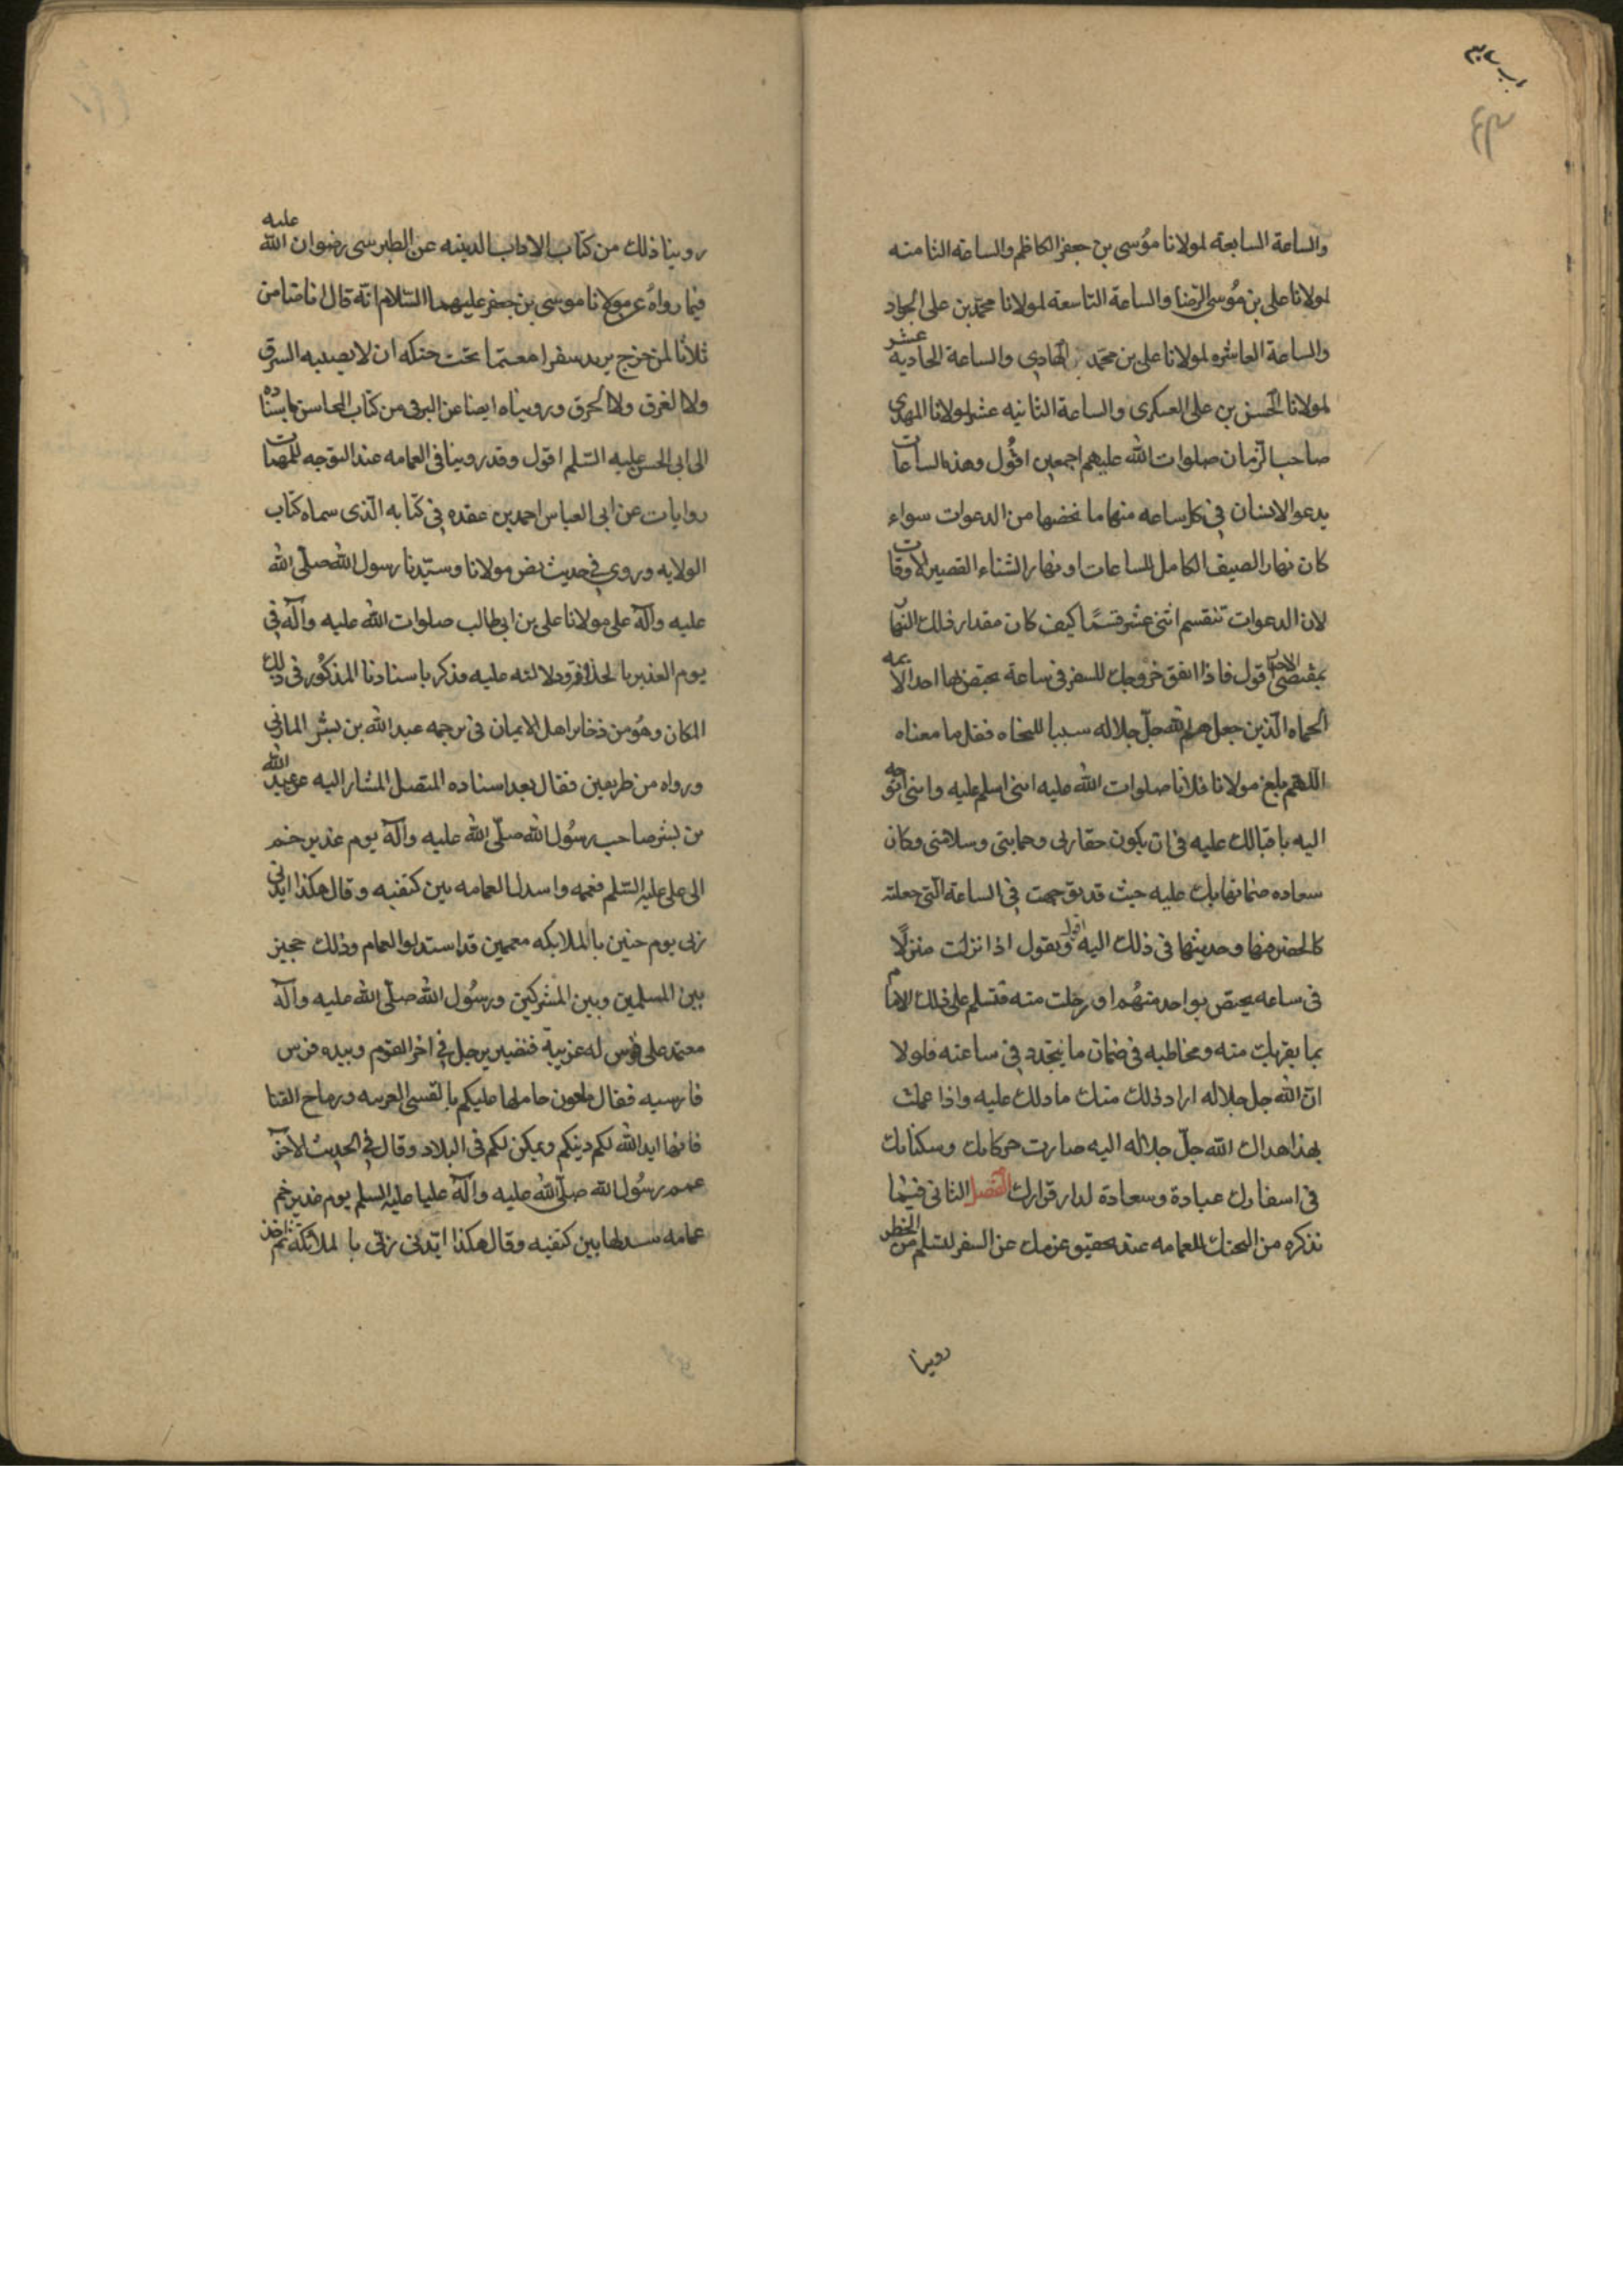 والساعة السابعة لمولانا موسى بن جعفر الكاظم والساعة الثامنه
لمولانا على بن موسى الرّضا والساعة التاسعة لمولانا محمّد بن على الجواد
والساعة العاشره لمولانا على بن محمّد الهادي والساعة الحاديه عشر
لمولانا الحسن بن على العسكرى والساعة الثانيه عشر لمولانا المهدي
صاحب الزمان صلوات الله عليهم اجمعين اقول وهذه الساعات
يدعو الانسان في كل ساعه منها ما يخصها من الدعوات سواء
كان نهار الصيف الكامل الساعات او نهار الشتاء القصير الاوقات
لان الدعوات تنقسم اثنى عشر قسمًا كيف كان مقدار ذلك النهار
بمقتضى الاخبار اقول فاذا اتفق خروجك للسفر فى ساعة يختص بها احد الايمه
الحماه الّذين جعلهم الله جلّ جلاله سببا للنجاه فقل ما معناه
اللهم بلغ مولانا فلانا صلوات الله عليه اننى اسلم عليه واننى اتوجه
اليه باقبالك عليه فى ان يكون خفارتى وحمايتى وسلامتى وكمال
سعاده ضمانها بك عليه حيث قد توجهت في الساعة الّتى جعلته
كالخفير فيها وحديثها فى ذلك اليه اقول ويقول اذا نزلت منزلًا
فى ساعه يختص بواحد منهُم او رحلت منه فتسلم على ذلك الامام
بما يقربك منه ويخاطبه فى ضمان ما يتجدد في ساعته فلولا
انّ الله جل جلاله اراد ذلك منك ما دلك عليه واذا عملت
بهذا هداك الله جلّ جلاله اليه صارت حركاتك وسكناتك
فى اسفارك عبادة وسعادة لدار قرارك الفصل الثانى فيما
نذكره من التحنك للعمامه عند تحقيق عزمك عن السفر لتسلم من الخطر
روينا
روينا ذلك من كتاب الاداب الدينيه عن الطبرسى رضوان الله عليه
فيما رواه عن مولانا موسى بن جعفر عليهما السّلام انّه قال انا ضامن
ثلاثا لمن خرج يريد سفرا معتما تحت حنكه ان لا يصيبه السرق
ولا الغرق ولا الحرق ورويناه ايضا عن البرقى من كتاب المحاسن باسناده
الى ابى الحسن عليه السّلم اقول وقد روينا فى العمامه عند التوجه للمهمات
روايات عن ابى العباس احمد بن عقده في كتابه الّذى سماه كتاب
الولايه وروى في حديث نص مولانا وسيّدنا رسول الله صلّى الله
عليه وآله على مولانا على بن ابى طالب صلوات الله عليه وآله في
يوم الغدير بالخلافة ودلالته عليه فذكر باسنادنا المذكور فى ذلك
المكان وهو من ذخاير اهل الايمان فى ترجمه عبد الله بن بشر المازني
ورواه من طريقين فقال بعد اسناده المتصل المشار اليه عن عبد الله
بن بشر صاحب رسُول الله صلّى الله عليه وآله يوم غدير خم
الى على عليه السّلم فعممه واسدل العمامه بين كتفيه وقال هكذا ايدنى
ربى يوم حنين بالملايكه معممين قد استدلوا العمام وذلك حجيز
بين المسلمين وبين المشركين ورسُول الله صلّى الله عليه وآله
معتمد على قوس له عربية فنضير برجل في اخر القوم وبيده قوس
فارسيه فقال ملعون حاملها عليكم بالقسى العربيه ورماح القنا
فانها ايد الله لكم دينكم ويمكن لكم فى البلاد وقال في الحديث الاخر
عمم رسُول الله صلّى الله عليه وآله عليا عليه السلم يوم غدير خم
عمامه سدلها بين كتفيه وقال هكذا ايّدنى ربّى بالملائكة ثم اخذ